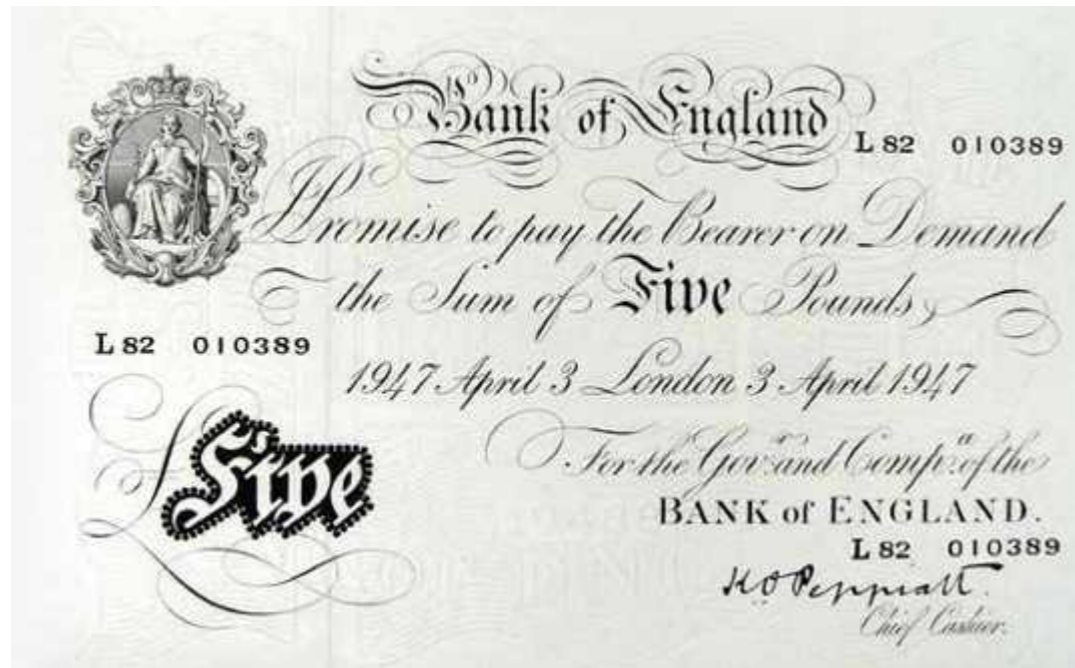 Bank of England
L 82 010389
I Promise to pay the Bearer on Demand
the Sum of Five Pounds
L 82 010389
1947 April 3 London 3 April 1947
For the Govr and Compa of the
BANK of ENGLAND.
Five
L 82 010389
K O Peppiatt.
Chief Cashier.